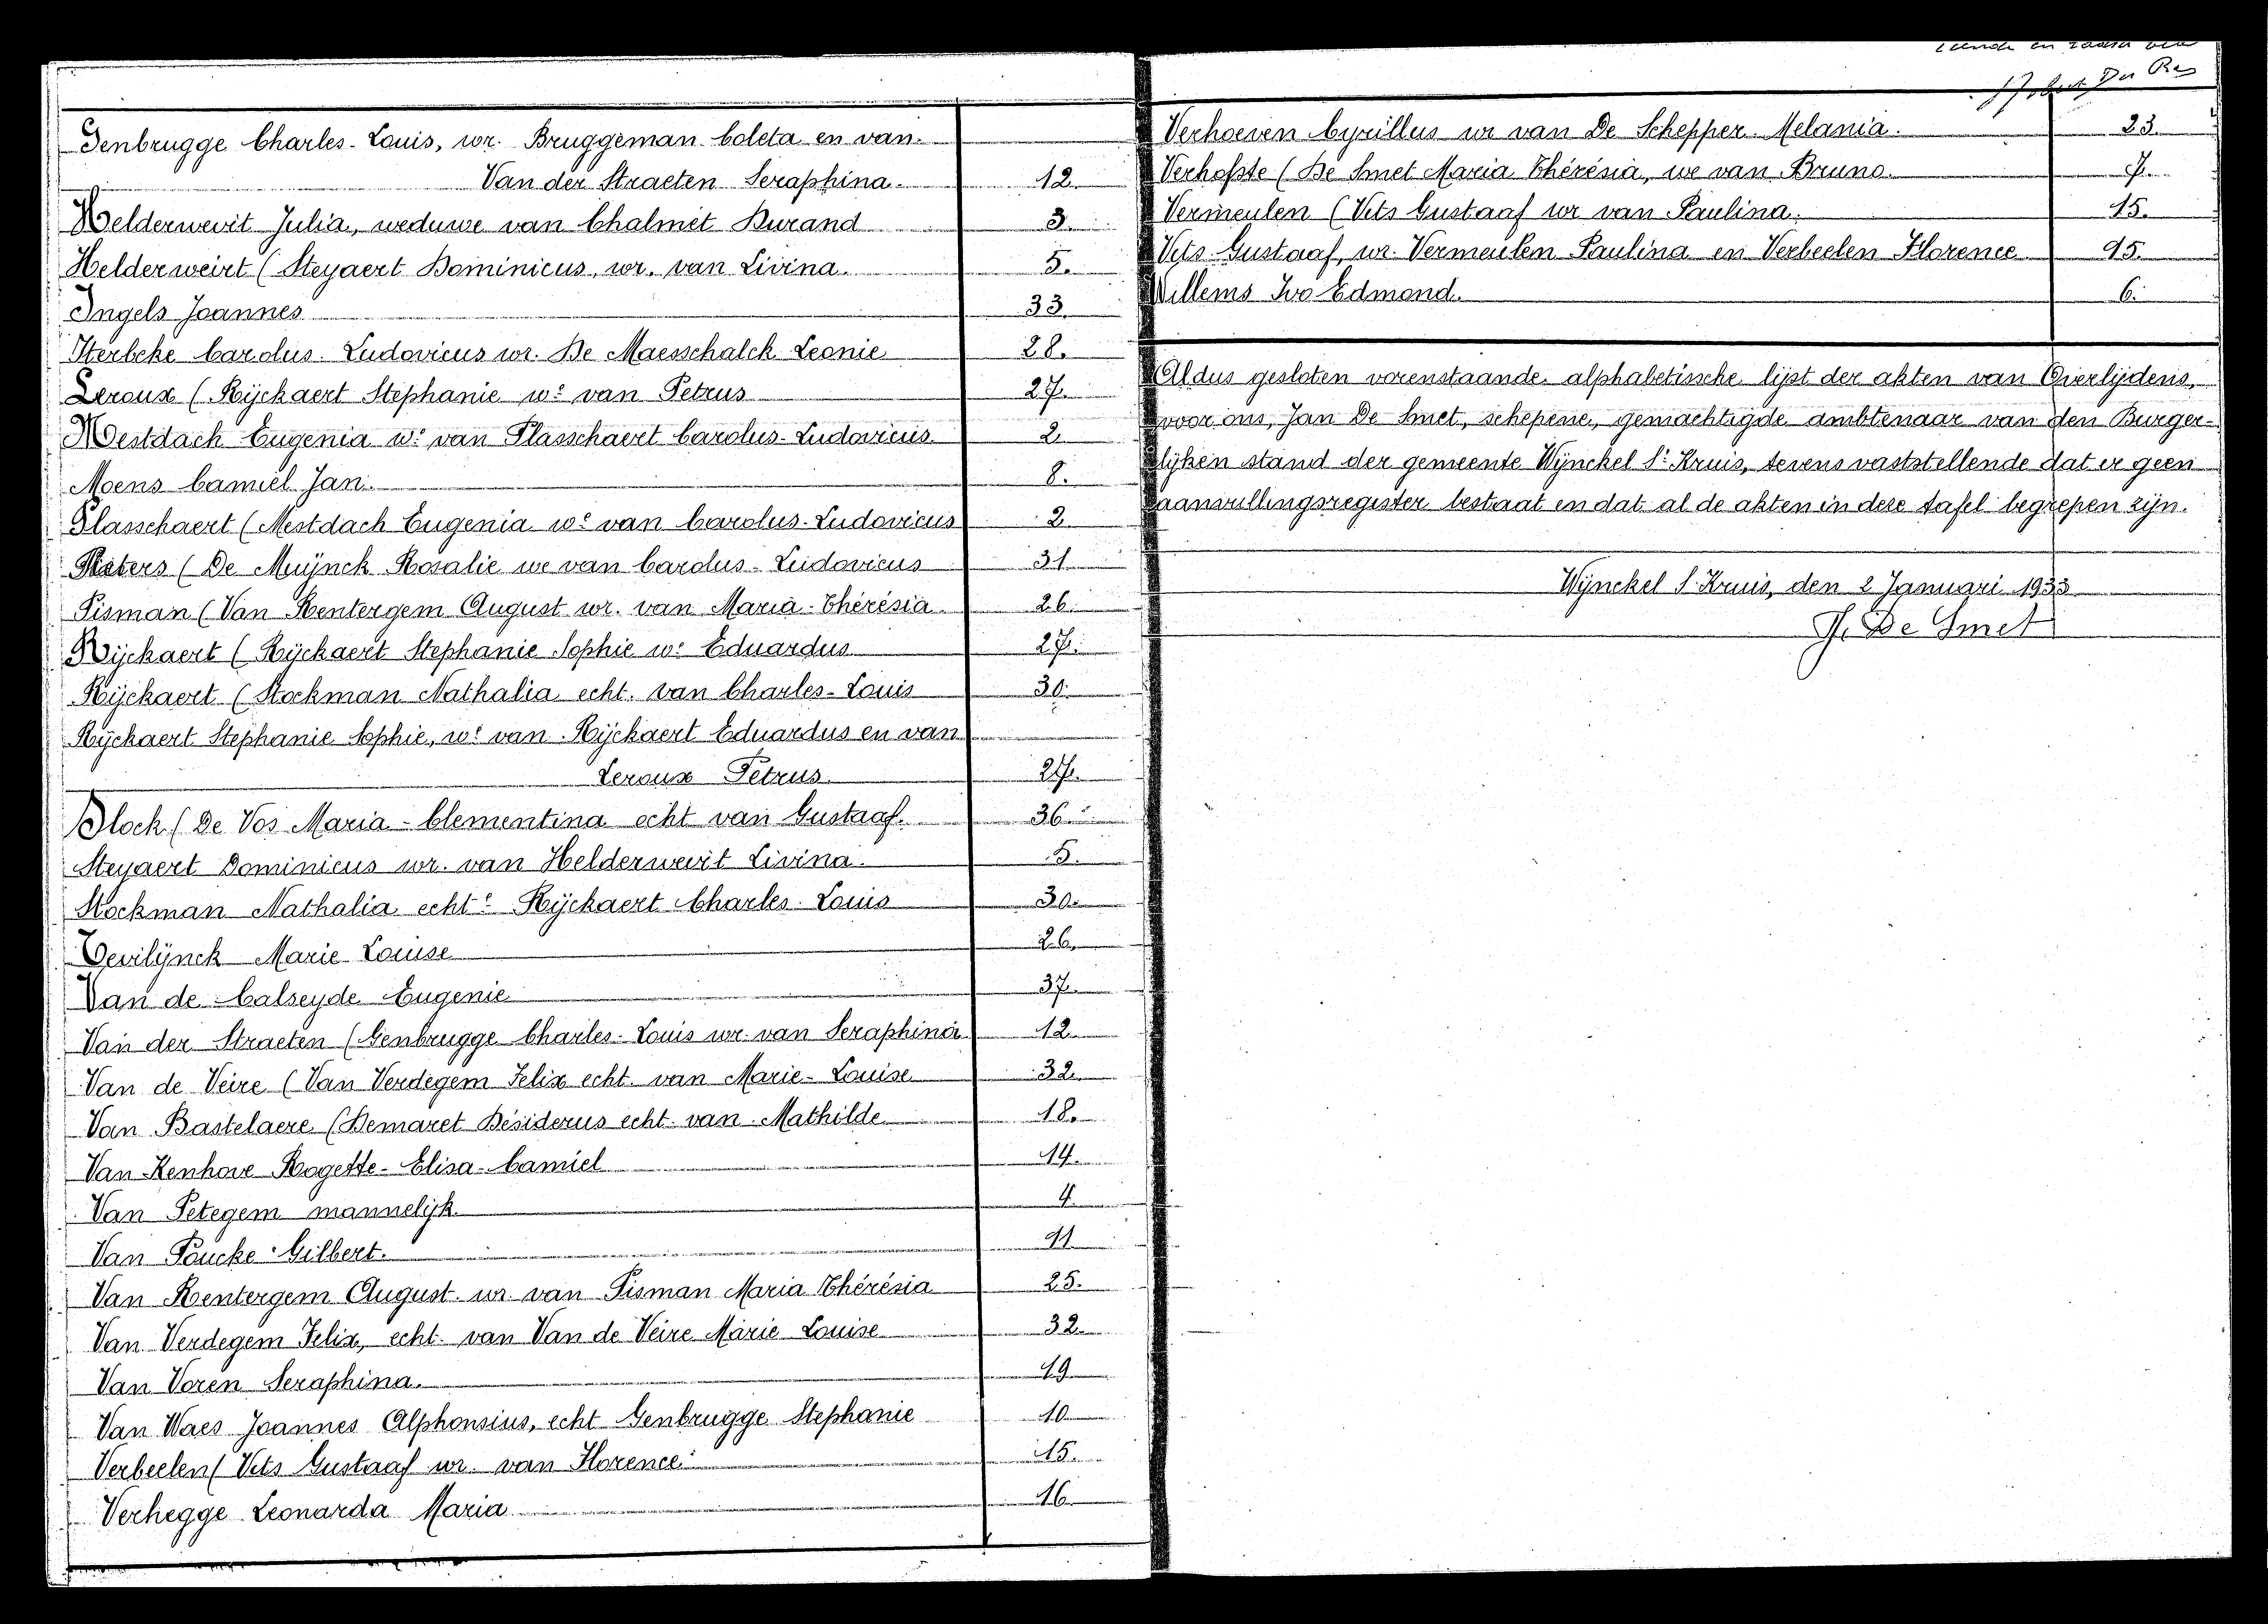 Genbrugge Charles-Louis, wr. Bruggeman Coleta en van
Van der Straeten Seraphina. 12
Helderweirt Julia, weduwe van Chalmet Durand 3.
Helderweirt (Steyaert Dominicus, wr. van Livina. 5.
Ingels Joannes 33.
Iterbeke Carolus-Ludovicus wr. De Maesschalck Leonie 28.
Leroux (Rijckaert Stephanie we van Petrus 27.
Mestdach Eugenia we van Plasschaert Carolus-Ludovicus 2.
Moens Camiel Jan. 8.
Plasschaert (Mestdach Eugenia we van Carolus-Ludovicus 2
Pieters (De Muijnck Rosalie we van Carolus-Ludovicus 31
Pisman (Van Rentergem August wr. van Maria-Thérésia 26
Rijckaert (Rijckaert Stephanie Sophie we Eduardus 27.
Rijckaert (Stockman Nathalia echt. van Charles-Louis 30.
Rijckaert Stephanie Sophie, we van Rijckaert Eduardus en van
Leroux Petrus. 27.
Slock (De Vos Maria-Clementina echt van Gustaaf. 36
Steyaert Dominicus wr. van Helderweirt Livina. 5.
Stockman Nathalia echte Rijckaert Charles Louis 30.
Tevilijnck Marie Louise 26.
Van de Calseyde Eugenie 37.
Van der Straeten (Genbrugge Charles-Louis wr. van Seraphina 12
Van de Veire (Van Verdegem Felix echt. van Marie-Louise 32.
Van Bastelaere (Demaret Désiderus echt. van Mathilde 18.
Van Kenhove Rogette-Elisa-Camiel 14.
Van Petegem mannelijk. 4.
Van Poucke Gilbert. 11
Van Rentergem August. wr. van Pisman Maria Thérésia 25.
Van Verdegem Felix, echt. van Van de Veire Marie Louise 32
Van Voren Seraphina. 19
Van Waes Joannes Alphonsius, echt Genbrugge Stephanie 10
Verbeelen (Vets Gustaaf wr. van Florence 15.
Verhegge Leonarda Maria 16
Verhoeven Cyrillus wr van De Schepper Melania. 23.
Verhofste (De Smet Maria Thérésia, we van Bruno. 7.
Vermeulen (Vets Gustaaf wr van Paulina. 15.
Vets Gustaaf, wr. Vermeulen Paulina en Verbeelen Florence 15.
Willems Ivo Edmond. 6.
Aldus gesloten vorenstaande alphabetissche lijst der akten van Overlijdens,
voor ons, Jan De Smet, schepene, gemachtigde ambtenaar van den Burger-
lijken stand der gemeente Wijnckel St Kruis, tevens vaststellende dat er geen
aanvullingsregister bestaat en dat al de akten in deze tafel begrepen zijn.
Wijnckel St Kruis, den 2 Januari 1933
J. De Smet